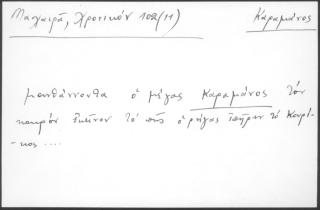 Μαχαιρᾶ, Χρονικόν 102 (11)
Καραμάνος
μανθάννοντα ὁ μέγας Καραμάνος τὸν
καιρὸν ἐκεῖνον τὸ πῶς ὁ ρήγας ἐπῆρεν τὸ Κουρί-
-κος ....